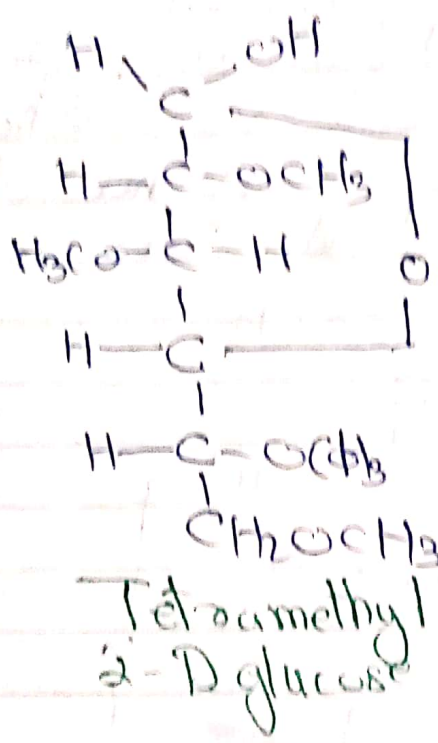 H OH
C
H-C-OCH3
H3CO-C-H
O
H-C
H-C-OCH3
CH2OCH3
Tetramethyl
α-D glucose